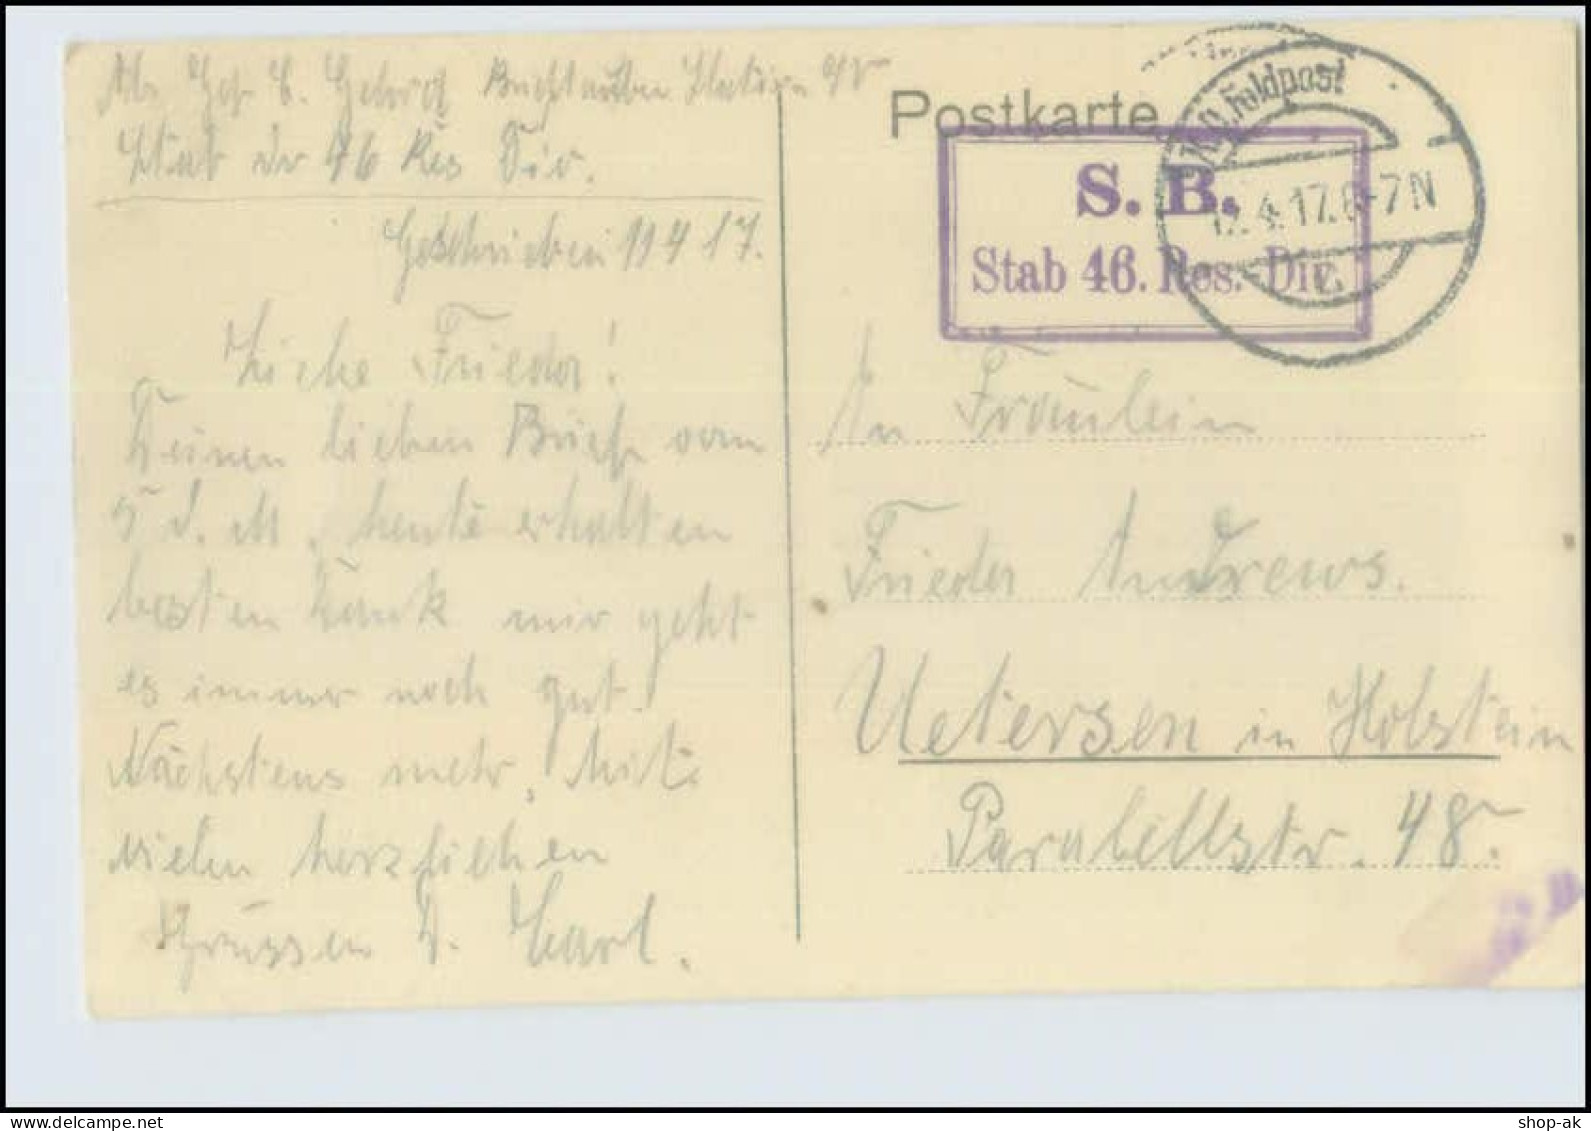 Abs. Gef. C. Gehrck Brieftauben Station 98
Stab der 46 Res Div.
Geschrieben 11 4 17.
Liebe Frieda!
Deinen lieben Brief vom
5 d. M. heute erhalten
besten Dank mir geht
es immer noch gut.
Nächstens mehr, Mit
vielen herzlichen
Grüssen D. Carl.
Postkarte
S. B.
Stab 46. Res.-Div.
K.D. Feldpost
12.4.17.6-7N
An Fräulein
Frieda Andrews.
Uetersen in Holstein
Parallelstr. 48.
shop-ak